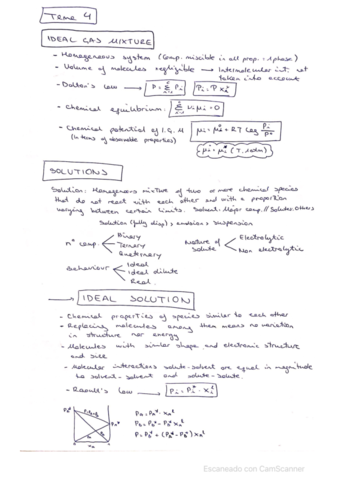 Tema 4
IDEAL GAS MIXTURE
- Homogeneous system (Comp. miscible in all prop. : 1 phase)
- Volume of molecules negligible → Intermolecular int. not
taken into account
- Dalton's law → P = Σ Pi   Pi = P xi
- Chemical equilibrium: Σ νi μi = 0
- Chemical potential of I.G. M
(In terms of observable properties)
μi = μi° + RT Log Pi/P°
SOLUTIONS
Solution: Homogeneous mixture of two or more chemical species
that do not react with each other and with a proportion
varying between certain limits. Solvent: Major comp. // Solute: Others
Solution (fully disp.) emulsion suspension
nº comp. Binary
Ternary
Quaternary
Nature of solute Electrolytic
Non electrolytic
Behaviour Ideal
Ideal dilute
Real
→ IDEAL SOLUTION
- Chemical properties of species similar to each other
- Replacing molecules among them means no variation
in structure nor energy
- Molecules with similar shape and electronic structure
and size
- Molecular interactions solute-solvent are equal in magnitude
to solvent-solvent and solute-solute.
- Raoult's law → Pi = Pi* · xi^l
Escaneado con CamScanner